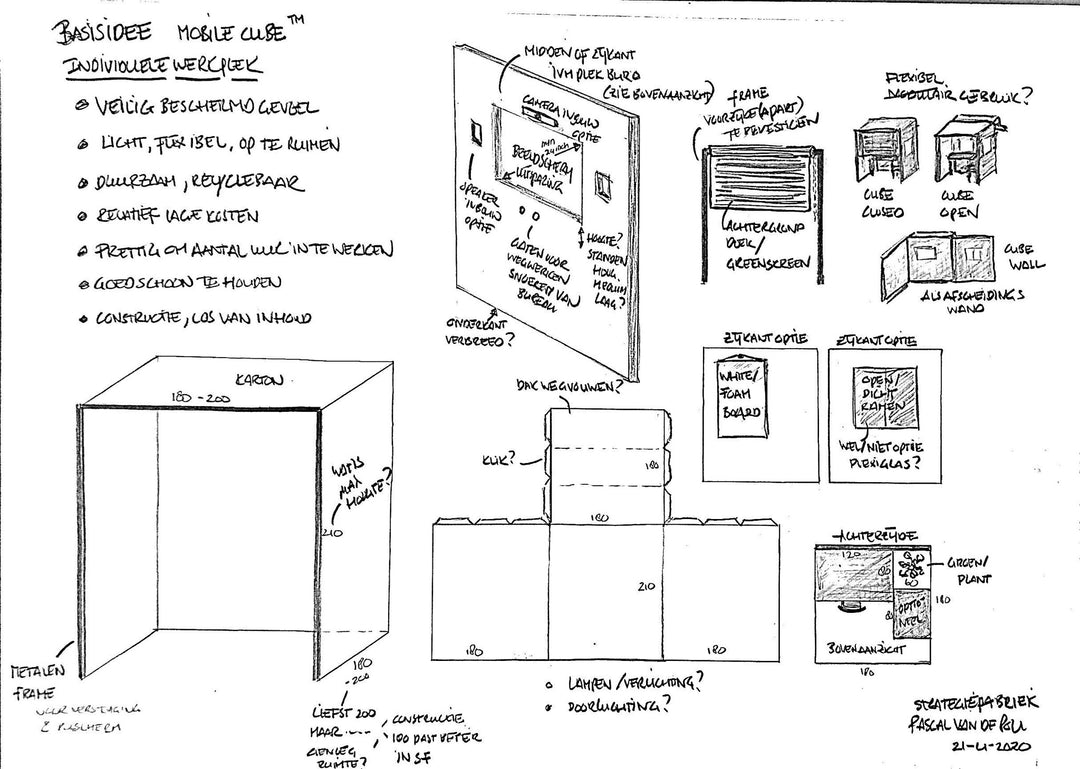 BASISIDEE MOBILE CUBE™
INDIVIDUELE WERKPLEK
VEILIG BESCHERMD GEVOEL
LICHT, FLEXIBEL, OP TE RUIMEN
DUURZAAM, RECYCLEBAAR
RELATIEF LAGE KOSTEN
PRETTIG OM AANTAL UUR IN TE WERKEN
GOED SCHOON TE HOUDEN
CONSTRUCTIE, LOS VAN INHOUD
MIDDEN OF ZIJKANT
IVM PLEK BURO
(ZIE BOVENAANZICHT)
CAMERA INBOUW
OPTIE
min
24 inch
BEELDSCHERM
UITSPARING
SPEAKER
INBOUW
OPTIE
GATEN VOOR
WEGWERKEN
SNOEREN VAN
BUREAU
HOOGTE?
STANDEN
HOOG
MEDIUM
LAAG?
ONDERKANT
VERBREED?
FRAME
VOORZIJDE (APART)
TE BEVESTIGEN
ACHTERGROND
DOEK/
GREENSCREEN
FLEXIBEL
GEBRUIK?
CUBE
CLOSED
CUBE
OPEN
CUBE
WALL
ALS AFSCHEIDINGS
WAND
ZIJKANT OPTIE
WHITE/
FOAM
BOARD
ZIJKANT OPTIE
OPEN/
DICHT
RAMEN
WEL/NIET OPTIE
PLEXIGLAS?
KARTON
180 - 200
WAT IS
MAX
HOOGTE?
210
180
-200
METALEN
FRAME
VOOR VERSTEVIGING
LIEFST 200
MAAR ----
GENOEG
RUIMTE?
CONSTRUCTIE
180 PAST BETER
IN SF
DAK WEGVOUWEN?
KLIK?
180
180
210
180
180
LAMPEN/VERLICHTING?
DOORLUCHTING?
ACHTERZIJDE
120
80
60
GROEN/
PLANT
80
OPTIO-
NEEL
180
BOVENAANZICHT
180
STRATEGIEFABRIEK
PASCAL VAN DE
21-4-2020